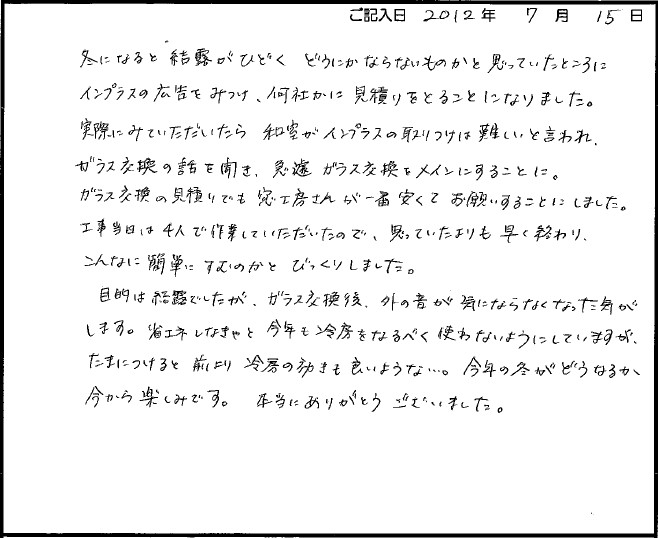 ご記入日 2012年 7月 15日
冬になると 結露が ひどく どうにかならないものかと 思っていたところに
インプラスの広告をみつけ、何社かに 見積りをとることになりました。
実際にみていただいたら 和室が インプラスの取りつけは 難しいと言われ、
ガラス交換の話を聞き、急遽 ガラス交換をメインにすることに。
ガラス交換の見積りでも 窓工房さんが一番安くて お願いすることにしました。
工事当日は 4人で作業していただいたので、思っていたよりも 早く終わり、
こんなに 簡単に すむのかと びっくりしました。
目的は 結露でしたが、ガラス交換後、外の音が 気にならなくなった気が
します。省エネしなきゃと 今年も 冷房をなるべく 使わないようにしていますが、
たまにつけると 前より 冷房の効きも 良いような…。今年の冬がどうなるか、
今から楽しみです。 本当にありがとう ございました。